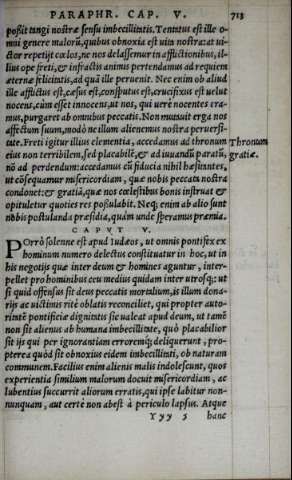 PARAPHR. CAP. V. 713
poßit tangi nostræ sensu imbecillitatis. Tentatus est ille o-
mni genere malorũ, quibus obnoxia est uita nostra: at ui-
ctor repetijt cœlos, ne nos delassemur in afflictionibus, il-
lius ope freti, & infractis animis pertendamus ad requiem
æternæ felicitatis, ad quã ille peruenit. Nec enim ob aliud
ille afflictus est, cæsus est, consputus est, crucifixus est uelut
nocens, cùm esset innocens, ut nos, qui uerè nocentes era-
mus, purgaret ab omnibus peccatis. Non mutauit erga nos
affectum suum, modò ne illum alienemus nostra peruersi-
tate. Freti igitur illius clementia, accedamus ad thronum
Thronum
eius non terribilem, sed placabilẽ, & ad iuuandũ paratũ,
gratiæ.
nõ ad perdendum: accedamus cũ fiducia nihil hæsitantes,
ut cõsequamur misericordiam, quæ nobis peccata nostra
condonet: & gratiã, quæ nos cœlestibus bonis instruat &
opituletur quoties res postulabit. Neq; enim ab alio sunt
nobis postulanda præsidia, quàm unde speramus præmia.
CAPVT V.
POrrò solenne est apud Iudæos, ut omnis pontifex ex
hominum numero delectus constituatur in hoc, ut in
his negotijs quæ inter deum & homines aguntur, inter-
pellet pro hominibus ceu medius quidam inter utrosq;: ut
si quid offensus sit deus peccatis mortalium, is illum dona-
rijs ac uictimis ritè oblatis reconciliet, qui propter auto-
ritatẽ pontificiæ dignitatis sic ualeat apud deum, ut tamẽ
non sit alienus ab humana imbecillitate, quò placabilior
sit ijs qui per ignorantiam erroremq; deliquerunt, pro-
pterea quòd sit obnoxius eidem imbecillitati, ob naturam
communem. Facilius enim alienis malis indolescunt, quos
experientia similium malorum docuit misericordiam, ac
lubentius succurrit aliorum erratis, qui ipse labitur non-
nunquam, aut certè non abest à periculo lapsus. Atque
Yyy 5 hanc